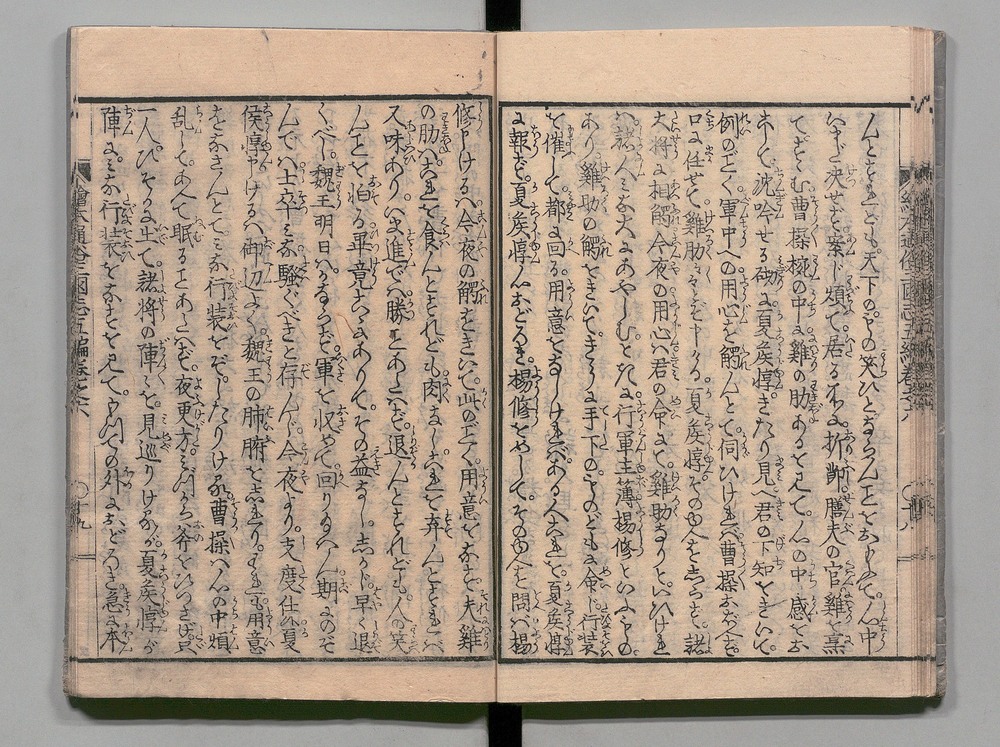 んとすれども天下の人の笑ひとならんことをおそれて心中
いまだ決せず案じ煩て居る所に折節膳夫の官雞を烹
てすゝむ曹操椀の中に雞の肋あるを見て心の中感をお
こして沈吟せる砌に夏侯惇きたり見へ君の下知をきいて
例のごとく軍中への用心を觸んとて伺ひければ曹操おぼえず
口に任せて雞肋々々と申さる夏侯惇その由をしらず諸
大将に相觸今夜の用心は君の命にて雞肋なりといひけれ
ば諸人みな大にあやしむときに行軍主簿楊修といふもの
あり雞肋の觸をきいてきうに手下のものどもに命じ行装
を催して都に回る用意をなしければある人これを夏侯惇
に報ず夏侯惇心おどろき楊修をめしてその由を問ば楊
修申けるは今夜の觸をきいて此ごとく用意をなす夫雞
の肋はこれを食んとすれども肉なしこれを弃んとすれば
又味ありいま進で勝ことあたはず退んとすれども人の笑
んことを怕る畢竟こゝにありてその益なししかじ早く退
くべし魏王明日はかならず軍を収めて回りなん期にのぞ
んでは士卒みな騒ぐべきと存んじ今夜より支度仕る夏
侯惇申けるは御辺よく魏王の肺腑をしれりとこれも用意
をなさんとてみな行装をぞしたりける曹操は心の中煩
乱してあへて眠ることあたはず夜更方みづから斧をひつさげ只
一人ひそかに出て諸将の陣々を見巡りけるが夏侯惇が
陣にみな行装をなすを見て以ての外におどろき急に本
繪本通俗三國志五編巻之六 十八
繪本通俗三國志五編巻之六 十九